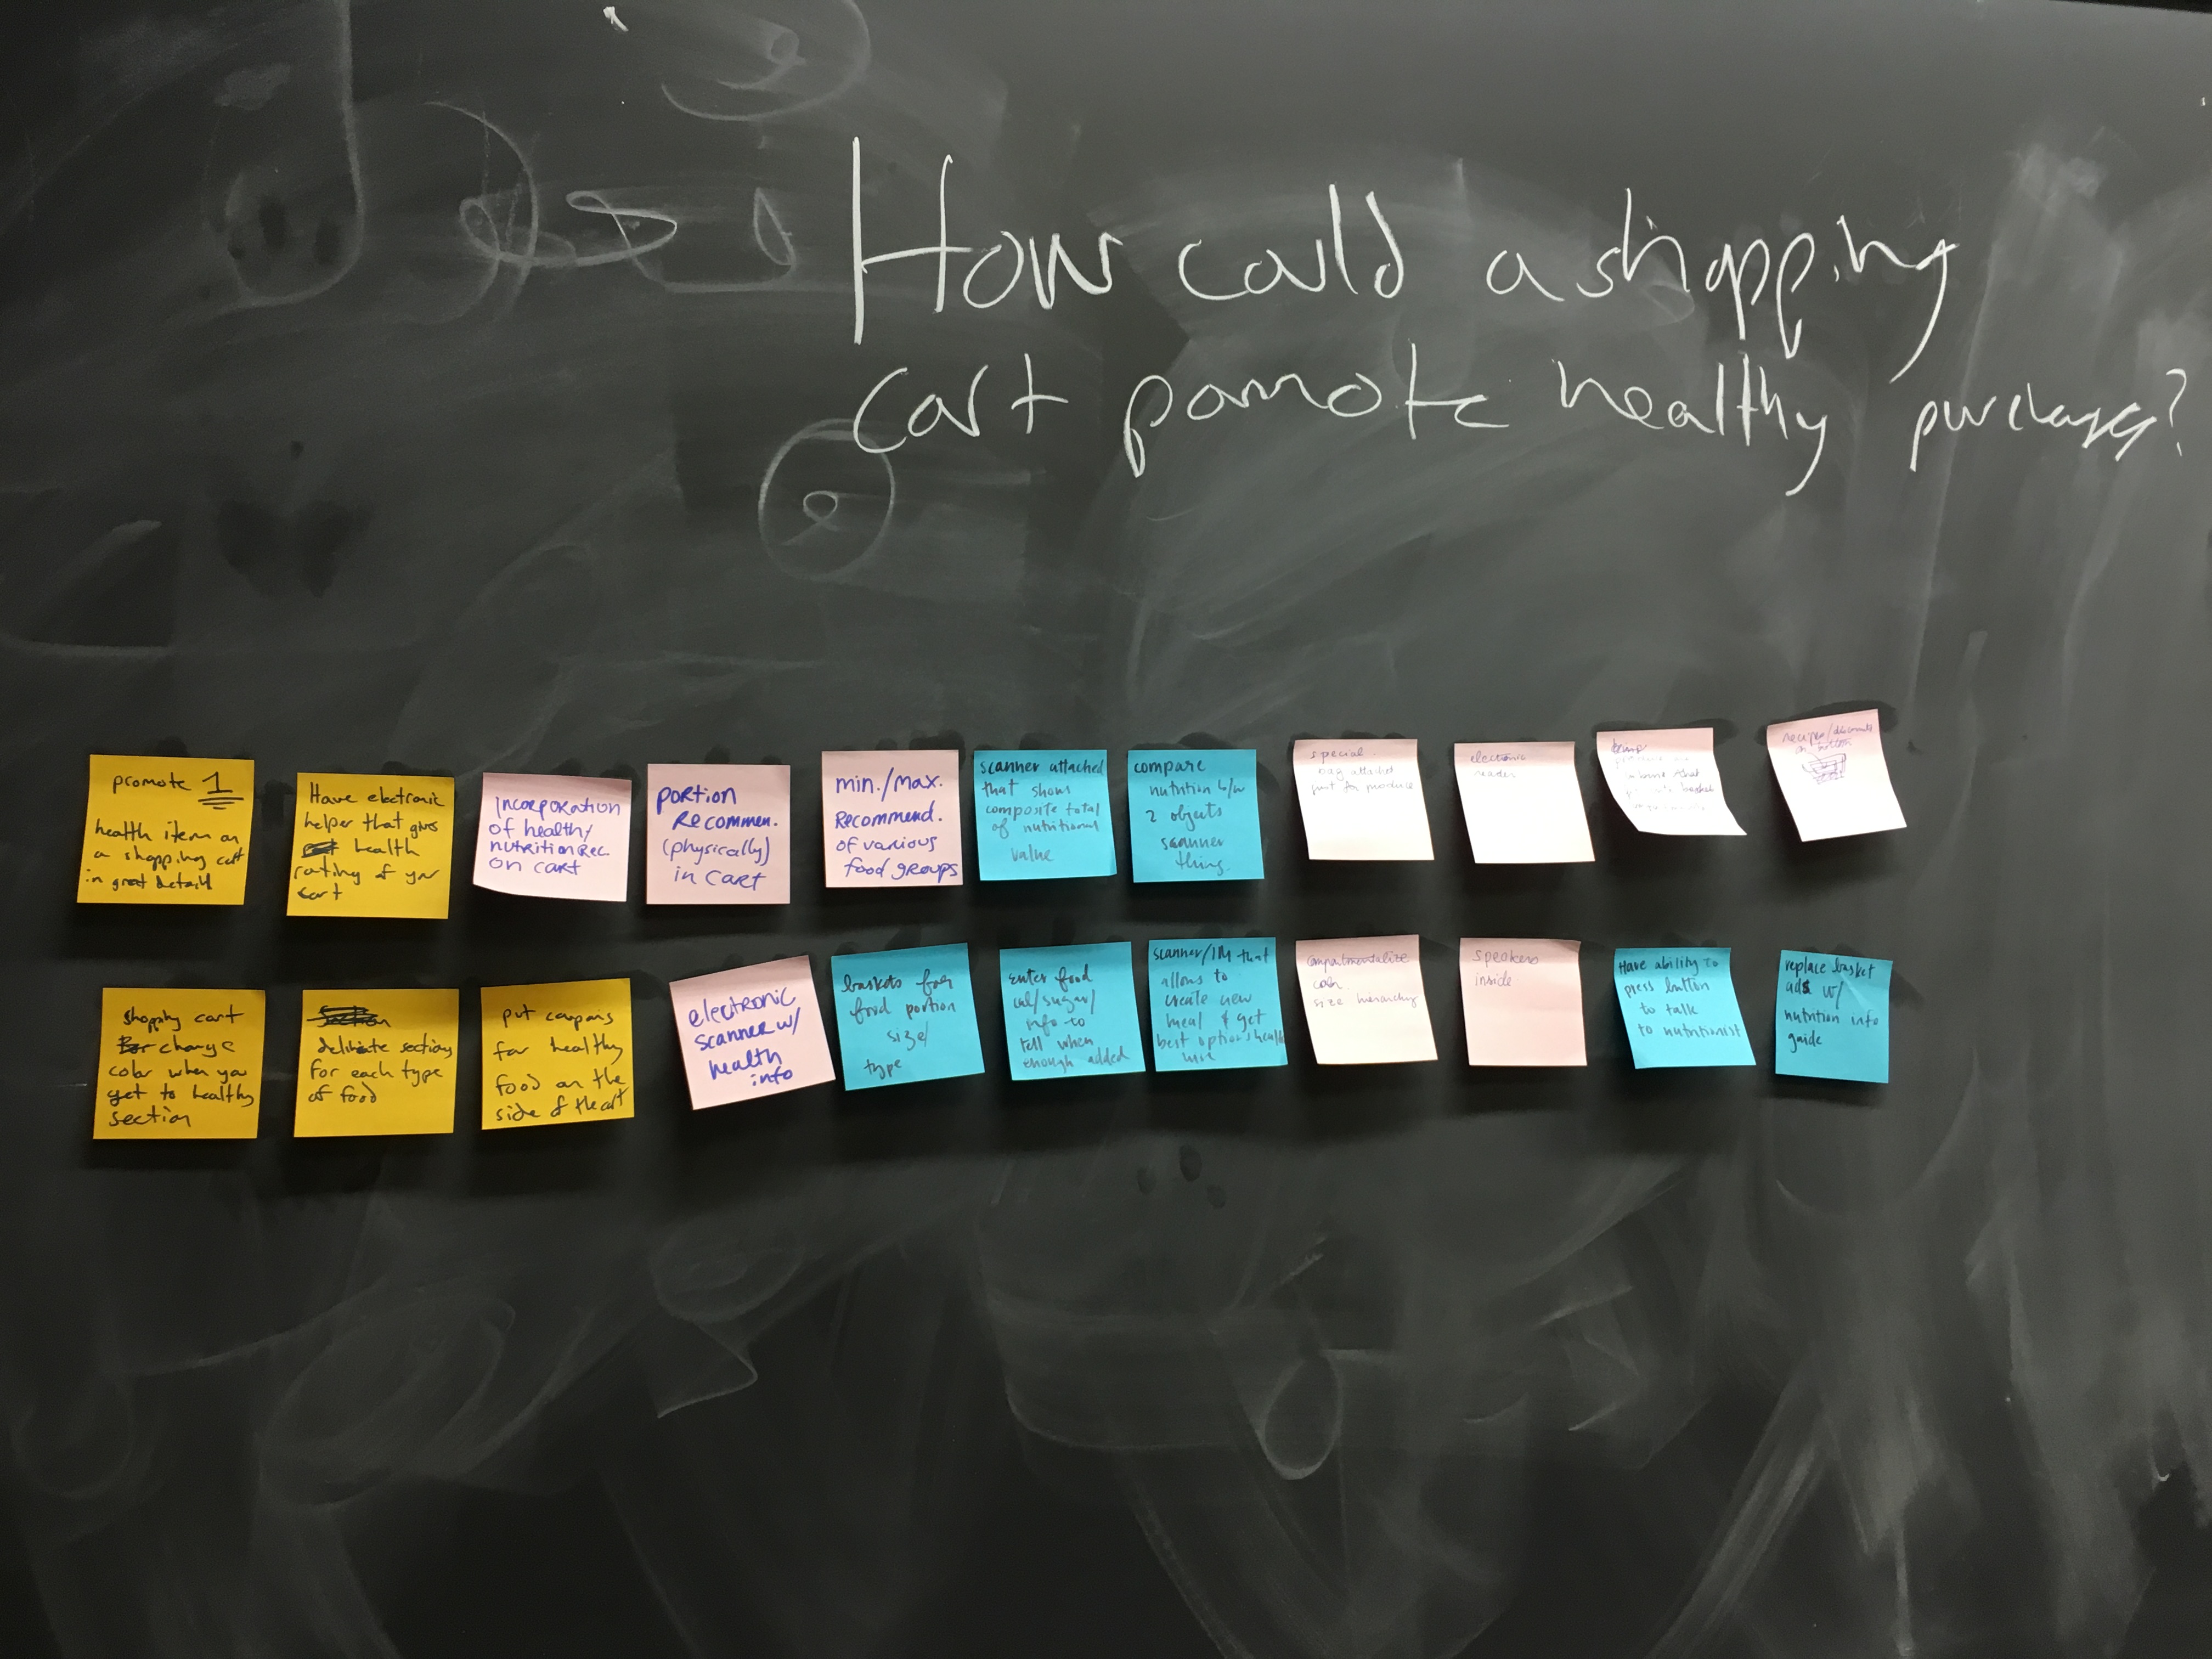 How could a shopping
cart pomote healthy purchases?
promote 1
health item on
a shopping cart
in great detail
Have electronic
helper that gives
health
rating of your
cart
incorporation
of health/
nutrition Rec.
on cart
portion
Recommen.
(physically)
in cart
min./max.
Recommend.
of various
food groups
scanner attached
that shows
composite total
of nutritional
value
compare
nutrition b/w
2 objects
scanner
thing.
special
bag attached
just for produce
electronic
reader
recipes/discounts
on
shopping cart
change
color when you
get to healthy
section
Section
sections
for each type
of food
put coupons
for healthy
food on the
side of the cart
electronic
scanner w/
health
info
baskets for
food portion
size/
type
enter food
cal/sugar/
info to
tell when
enough added
scanner/ that
allows to
create new
meal & get
best options health
wise
compartmentalize
size hierarchy
speakers
inside
Have ability to
press button
to talk
to nutritionist
replace basket
ads w/
nutrition info
guide